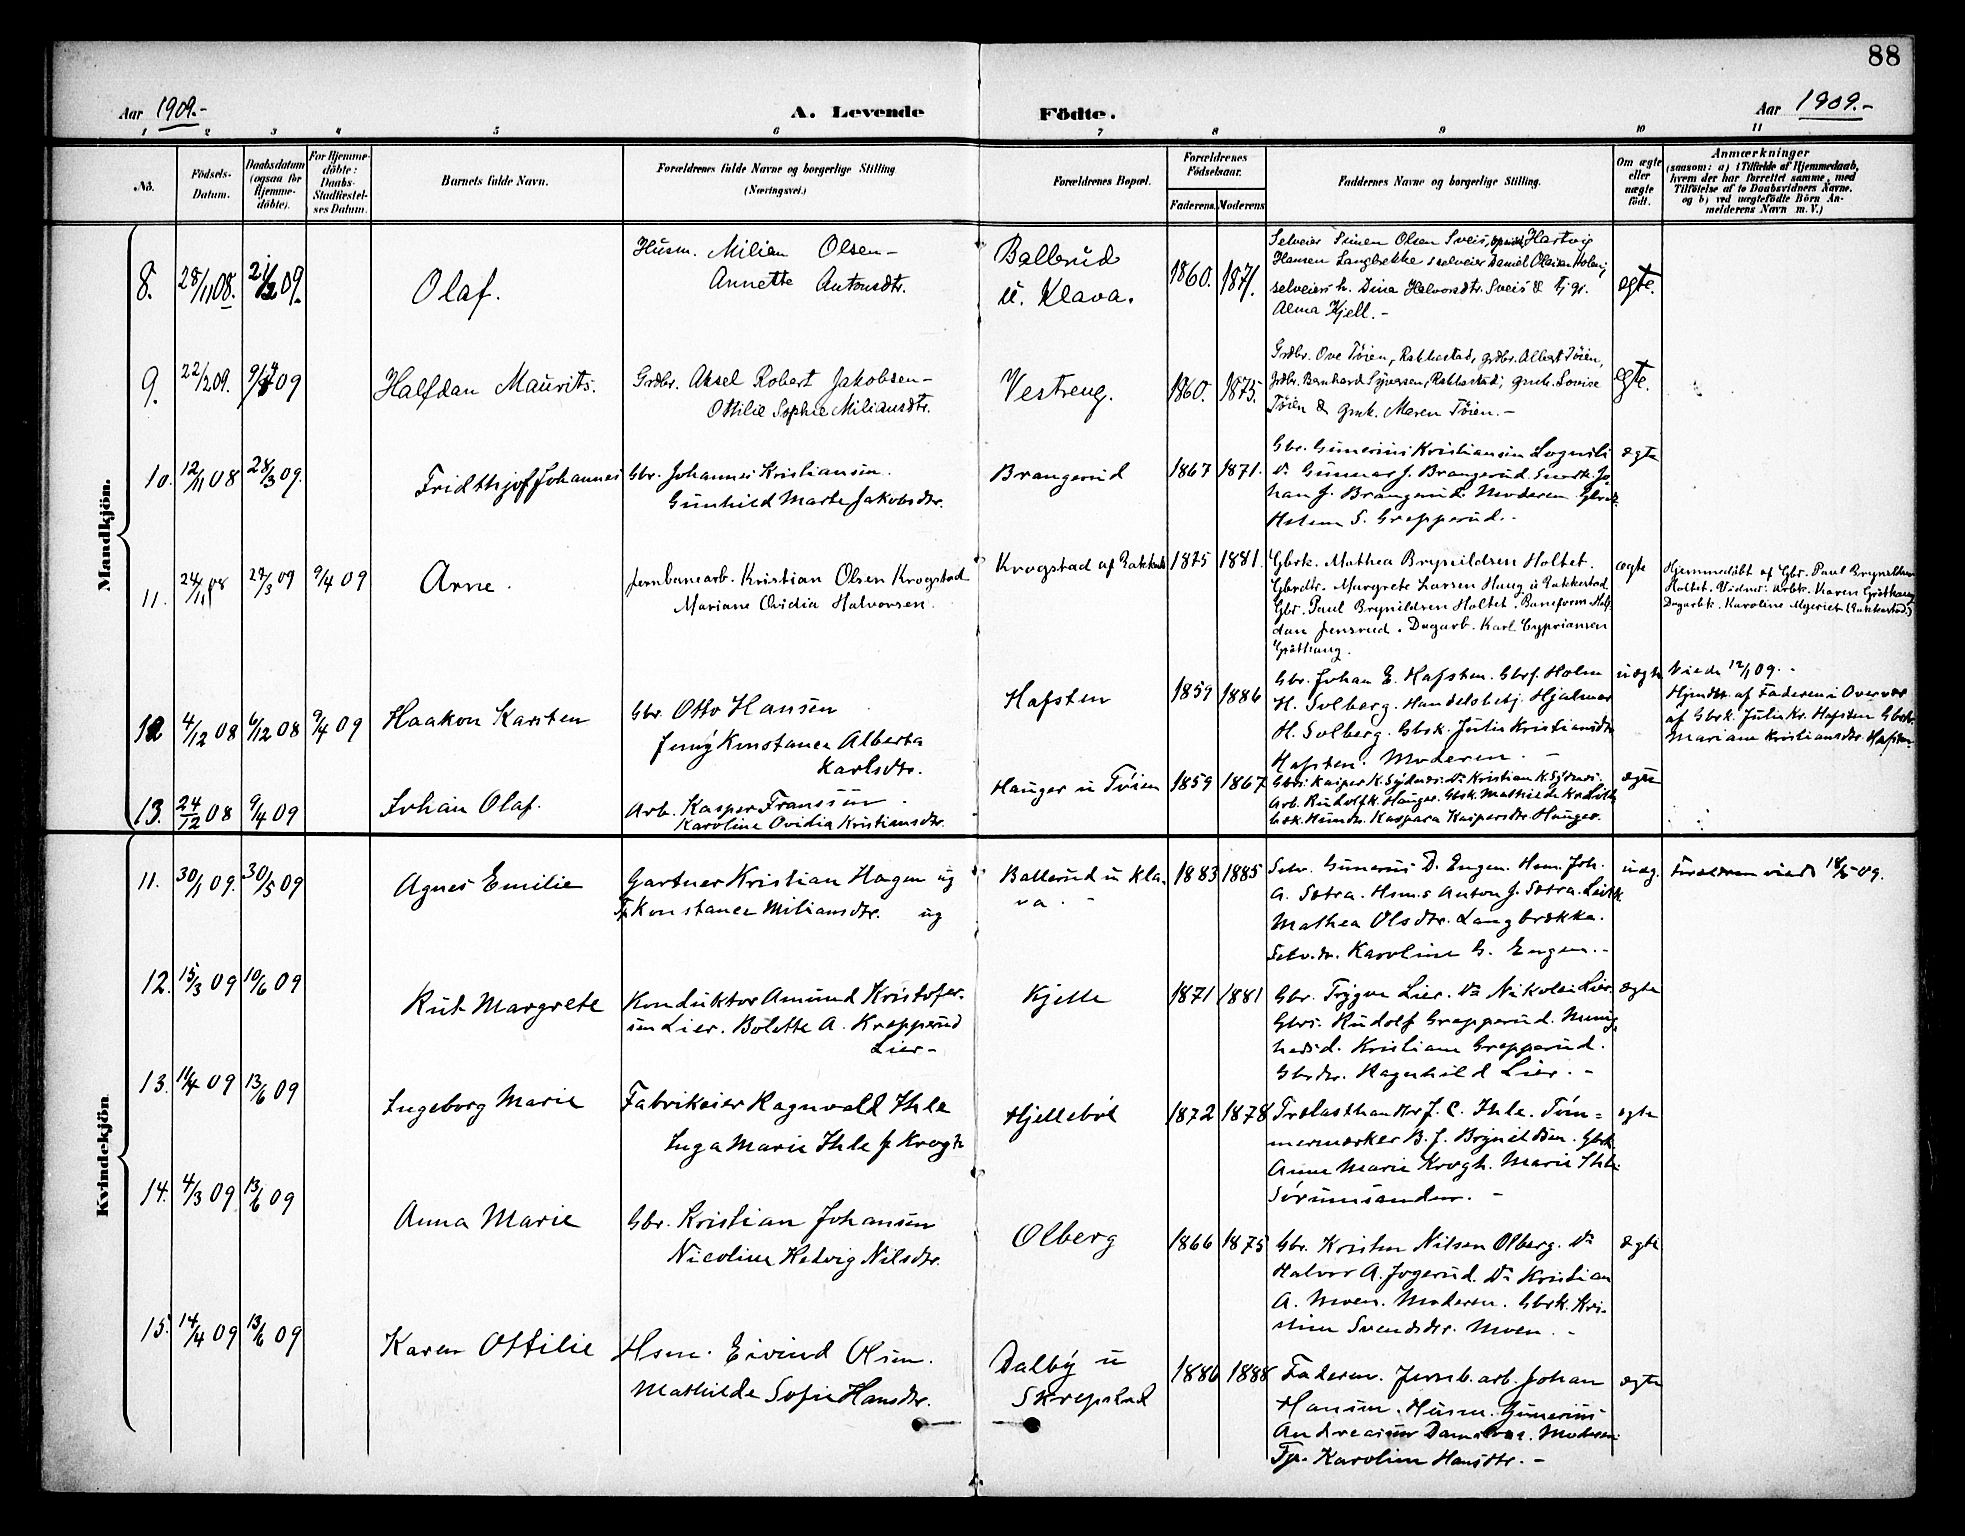 88
Aar 1909.-
A. Levende Födte.
Aar 1909.-
1 2 3 4 5 6 7 8 9 10 11
No.
Fødsels-Datum.
Daabsdatum (ogsaa for Hjemme-døbte).
For Hjemme-døbte: Daabs-Stadfæstel-ses Datum.
Barnets fulde Navn.
Forældrenes fulde Navne og borgerlige Stilling (Næringsvei.)
Forældrenes Bopæl.
Forældrenes Födselsaar.
Faderens. Moderens
Faddernes Navne og borgerlige Stilling.
Om ægte eller uægte födt.
Anmærkninger
(saasom: a) i Tilfælde af Hjemmedaab,
hvem der har forrettet samme, med
Tilföielse af to Daabsvidners Navne.
og b) ved uægtefödte Börn An-
melderens Navn m. V.)
Mandkjön.
8. 28/11 08. 21/2 09. Olaf.
Husm. Milian Olsen-
Annette Antonsdtr.
Ballerud
u. Klava.
1860. 1871.
Selveier Simen Olsen Sveis, Hartvig
Hansen Langbrekke, selveier Daniel
selveiersk. Dina Halvorsdtr. Sveis & pige
Alma Kjell.-
ægte.
9. 22/2 09. 9/4 09 Halfdan Maurits.
Grdbr. Aksel Robert Jakobsen-
Ottilie Sophie Miliansdtr.
Vestreng.
1860. 1875.
Grdbr. Ove Tøien, Rakkestad, grdbr. Albert Tøien,
Grdbr. Bernhard Syversen, Rakkestad, gmk. Lovise
Tøien & gmk. Maren Tøien.-
ægte.
10. 12/11 08 28/3 09. Fridthjof Johannes
Gbr. Johannes Kristiansen.
Gunhild Marte Jakobsdtr.
Brangerud
1867 1871.
Gbr. Gunerius Kristiansen Lognsli
Do Gunnar J. Brangerud. Snedk. Jo-
han J. Brangerud. Moderen. Gbrk.
Helene S. Grepperud.-
ægte
11. 24/11 08 27/3 09 9/4 09 Arne.
Jernbanearb. Kristian Olsen Krogstad
Mariane Ovidia Halvorsen.
Krogstad af Rakkestad
1875 1881.
Gbrk. Mathea Brynildsen Holtet.
Gbrdtr. Margrete Larsen Haug u Rakkestad
Gbr. Paul Brynildsen Holtet. Baneform. Half-
dan Jensrud. Dagarb. Karl Cypriansen
Gråthaug.
ægte
Hjemmedøbt af Gbr. Paul Brynildsen
Holtet. Vidner: Arbk. Karen Gråthaug
Dagarbk. Karoline Myeriet (Rakkestad.)
12 4/12 08 6/12 08 9/4 09 Haakon Karsten
Gbr. Otto Hansen
Jenny Konstance Alberta
Karlsdtr.
Hafsten
1859 1886
Gbr. Johan E. Hafsten. Gbrf. Holm
H. Solberg. Handelsbetj. Hjalmar
H. Solberg. Gbrk. Julie Kristiansdtr
Hafsten. Moderen.
uægte
Viede 12/1 09.-
Hjmdbt. af Faderen i Overvær
af Gbrk. Julie Kr. Hafsten Gbrk.
Mariane Kristiansdtr. Hafsten
13. 24/12 08 9/4 09 Johan Olaf.
Arb. Kasper Franssen.
Karoline Ovidia Kristiansdtr.
Hauger u Tøien
1859 1867
Gbrs. Kasper K. Sydnes. Do Kristian K. Sydnes.
Arb. Rudolf K. Hauger. Gbsk. Mathilde
Kaspara Kaspersdtr. Hauger.
ægte
Kvindekjön
11. 30/1 09. 30/5 09 Agnes Emilie
Gartner Kristian Hagen og
Tp Konstance Miliansdtr. ug
Ballerud u Kla-
va.
1883 1885
Selv. Gunerius D. Engen. Hsm. Joh.
A. Sætra. Hsms Anton J. Sætra.
Mathea Olsdtr. Langbrækka.
Selv.dr. Karoline G. Engen.-
uæg.
Forældrene viede 18/5 09.
12. 15/3 09 10/6 09 Rut Margrete
Konduktør Amund Kristofer-
sen Lier. Bolette A. Krepperud
Lier-
Kjelle
1871 1881
Gbr. Trygve Lier. Do Nikolai Lier.
Gbrs. Rudolf Grepperud. Menig-
hedsd. Kristiane Grepperud.
Gbrdtr. Ragnhild Lier.-
ægte
13. 11/4 09 13/6 09 Ingeborg Marie
Fabrikeier Ragnvald Ihle
Inga Marie Ihle f. Krogh
Hjellebøl
1872 1878
Trælasthandler J. C. Ihle. Tøm-
mermærker B. J. Brynildsen. Gbrk.
Anne Marie Krogh. Marie Ihle
Sørumsanden.-
ægte
14. 4/3 09 13/6 09 Anna Marie
Gbr. Kristian Johansen
Nicoline Hedvig Nilsdtr.
Olberg
1866 1875
Gbr. Kristen Nilsen Olberg. Do
Halvor A. Jogerud. Do Kristian
A. Moen. Moderen. Gbrk. Kri-
stine Svendsdtr. Moen.-
ægte
15. 14/4 09 13/6 09 Karen Ottilie
Hsm. Eivind Olsen.
Mathilde Sofie Hansdtr.
Dalby u
Skrepstad
1886 1888
Faderen. Jernb.arb. Johan
Hansen. Husm. Gunerius
Andreassen Moderen
Tp. Karoline Hansdtr.-
ægte